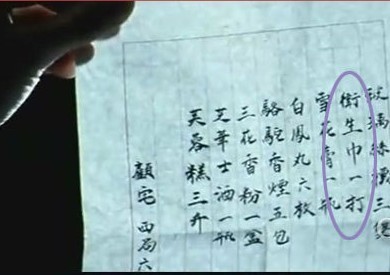 玻璃絲襪三
衛生巾一打
雪花膏一瓶
白鳳丸六枚
駱駝香煙五包
三花香粉一盒
芝華士酒一瓶
芙蓉糕三斤
顧宅 西局六